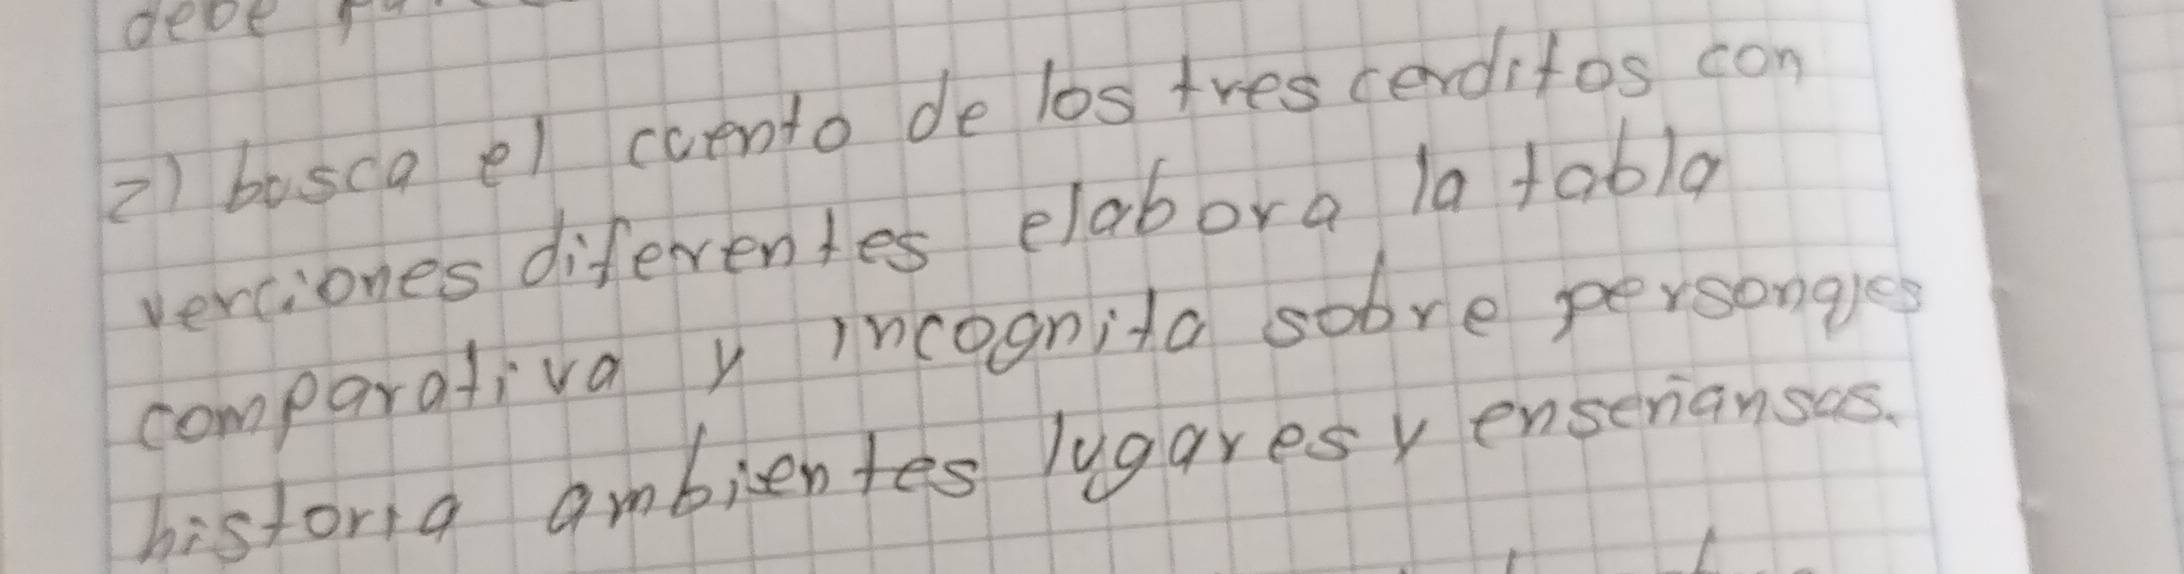 debe
2) busca el cuento de los tres cerditos con
verciones diferentes elabora la tabla
comparativa y incognita sobre personajes
historia ambientes lugares y enseñansas.